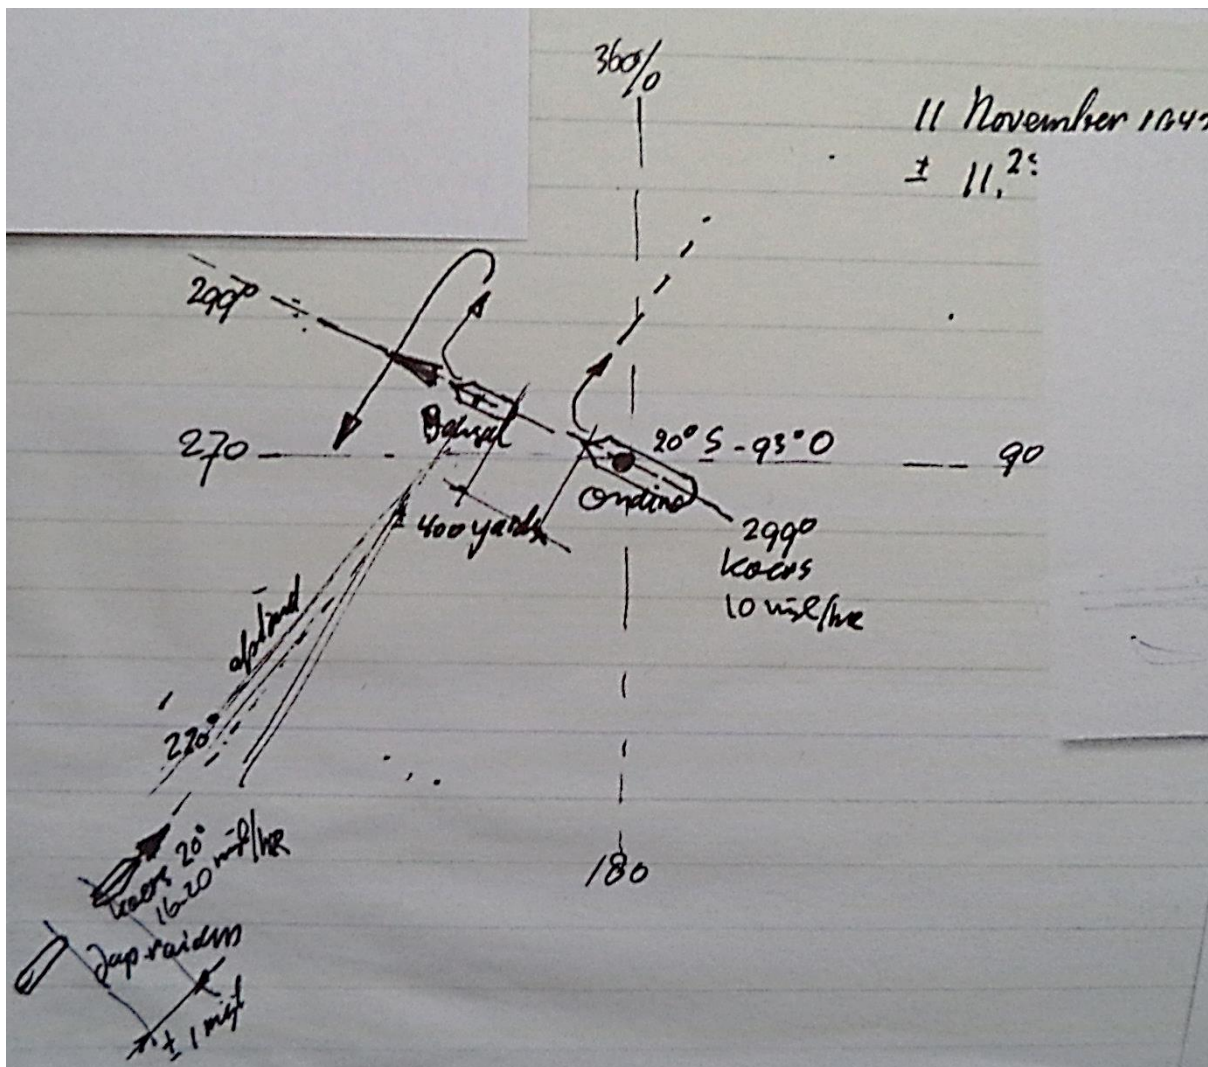 360/0
11 November 194
± 11,2
299°
Bengal
270
20° S - 93° O
90
Ondina
400 yards
299°
koers
10 mijl/hr
afstand
220°
180
koers 20°
16-20 mijl/hr
Jap-raiders
± 1 mijl